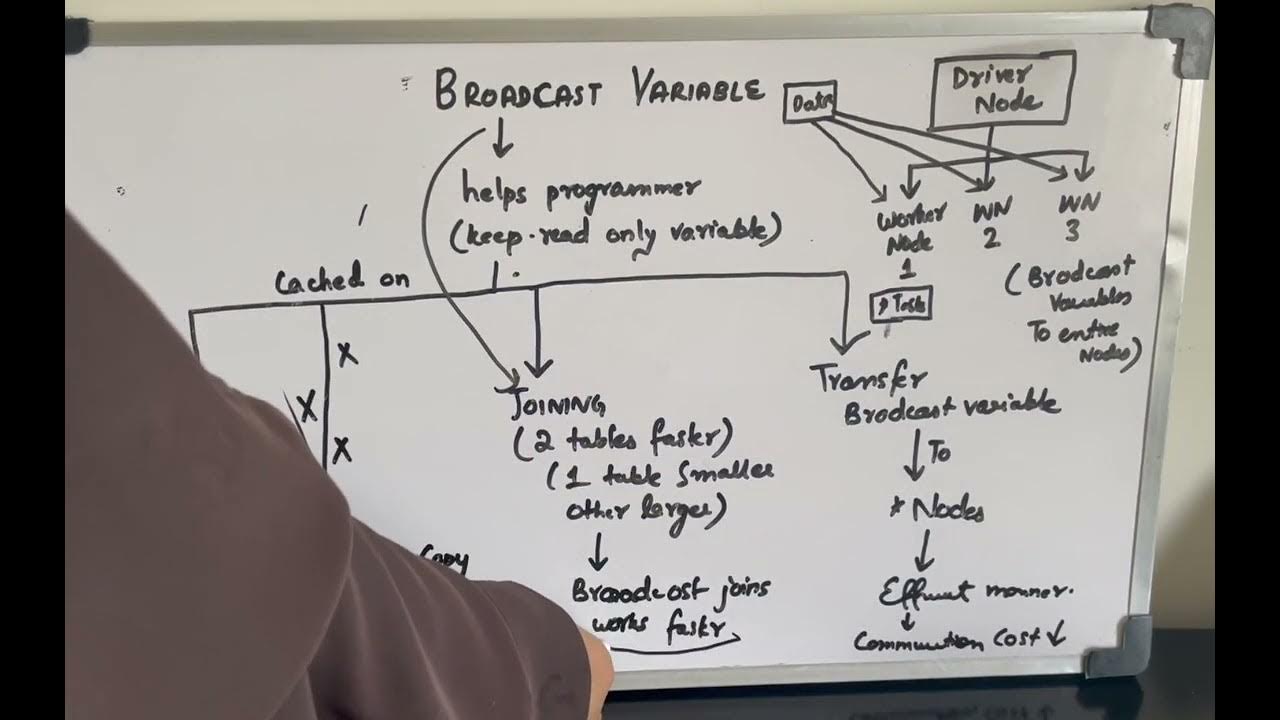 BROADCAST VARIABLE
Data
Driver
Node
helps programmer
(keep-read only variable)
Worker
Node
1
WN
2
WN
3
Cached on
Task
(Brodcast
Variables
To entire
Nodes)
X
X
X
JOINING
(2 tables faster)
(1 table smaller
other larger)
Broadcast joins
works faster
Transfer
Brodcast variable
To
* Nodes
manner.
cost ↓
Copy